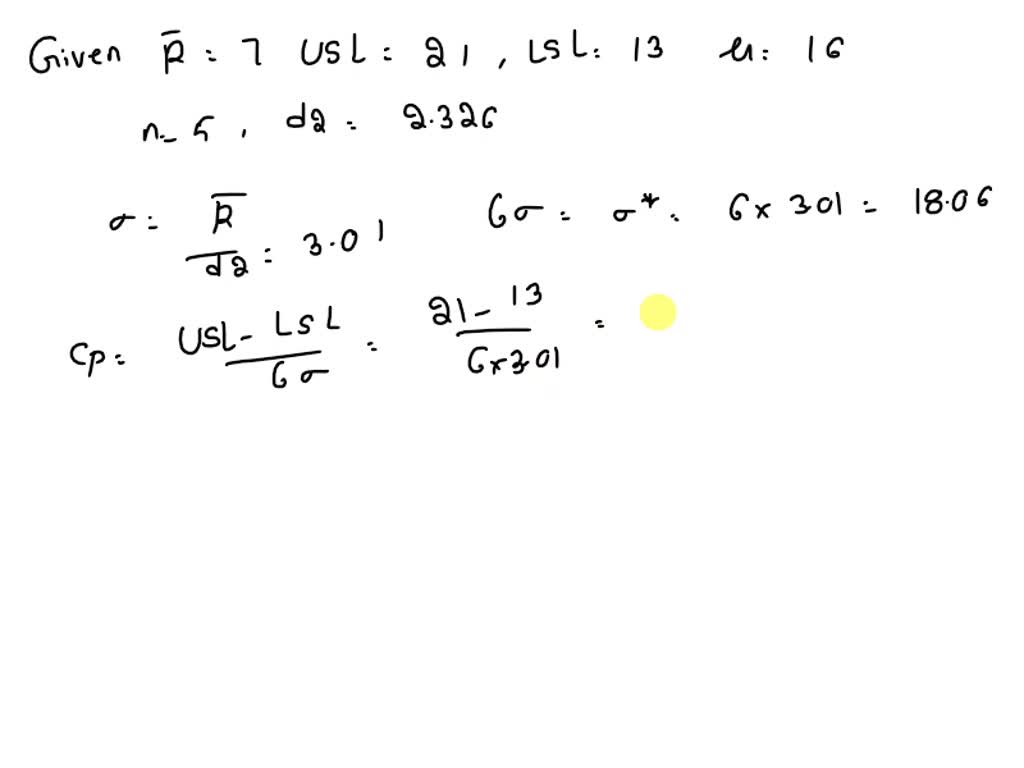 Given R̄ : 7 USL : 21 , LSL : 13 μ : 16
n = 5 , d2 = 2.326
σ = R̄/d2 = 3.01 6σ = σ* = 6 x 3.01 = 18.06
Cp = USL - LSL / 6σ = 21 - 13 / 6x3.01 =